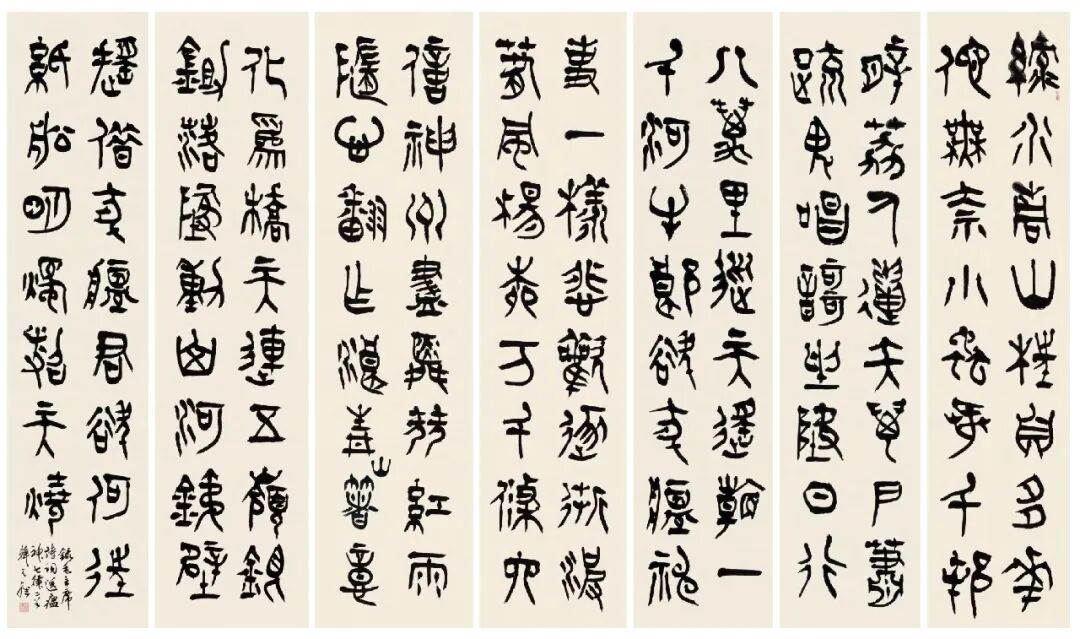 綠水青山枉自多華
佗無奈小蟲何千村
薜荔人遺矢萬戶蕭
疏鬼唱歌坐地日行
八萬里巡天遙看一
千河牛郎欲問瘟神
事一樣悲歡逐逝波
春風楊柳万千條六
億神州盡舜堯紅雨
隨心翻作浪青山著意
化爲橋天連五嶺銀
鋤落地動山河鐵臂
搖借問瘟君欲何往
紙船明燭照天燒
錄毛主席
詩詞送瘟
神七律二首